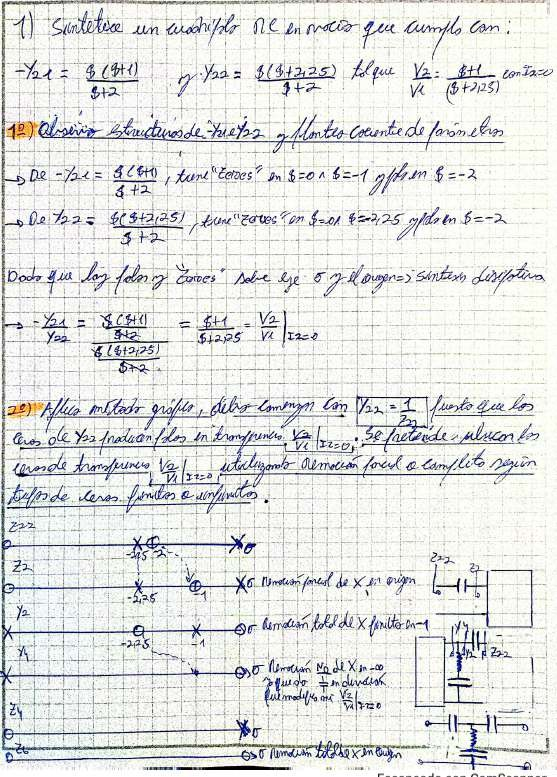 1) Sintetice un cuadripolo RC en vacío que cumpla con:
-Y21 = $($+1) / $+2 y Y22 = $($+2,25) / $+2 tal que V2/V1 = $+1 / ($+2,25) con I2=0
1º) Observo estructuras de -Y21 e Y22 y planteo cociente de parámetros
→ De -Y21 = $($+1) / $+2, tiene "ceros" en $=0 ∧ $=-1 y polo en $=-2
→ De Y22 = $($+2,25) / $+2, tiene "ceros" en $=0 ∧ $=-2,25 y polo en $=-2
Dado que hay polos y "ceros" sobre eje σ y el origen => síntesis disipativa
→ -Y21 / Y22 = $($+1) / $+2 / $($+2,25) / $+2 = $+1 / $+2,25 = V2/V1 | I2=0
2º) Aplico método gráfico, debo comenzar con Y22 = 1/Z22 puesto que los
ceros de Y22 producen polos en transferencia V2/V1 | I2=0. Se pretende ubicar los
ceros de transferencia V2/V1 | I2=0, utilizando remoción parcial o completa según
tipos de ceros finitos o infinitos.
Z22
σ
-2,25 -2
Z2
σ Remoción parcial de X en origen
-2,25 -1
Y2
σ Remoción total de X finito en -1
-2,25 -1
Y4
σ Remoción NO de X en -∞
en derivación
que modifica mi V2/V1 | I2=0
Z4
σ
Z6
σ Remoción total de X en origen
Z22 Z2
Y4
Y2 Z22